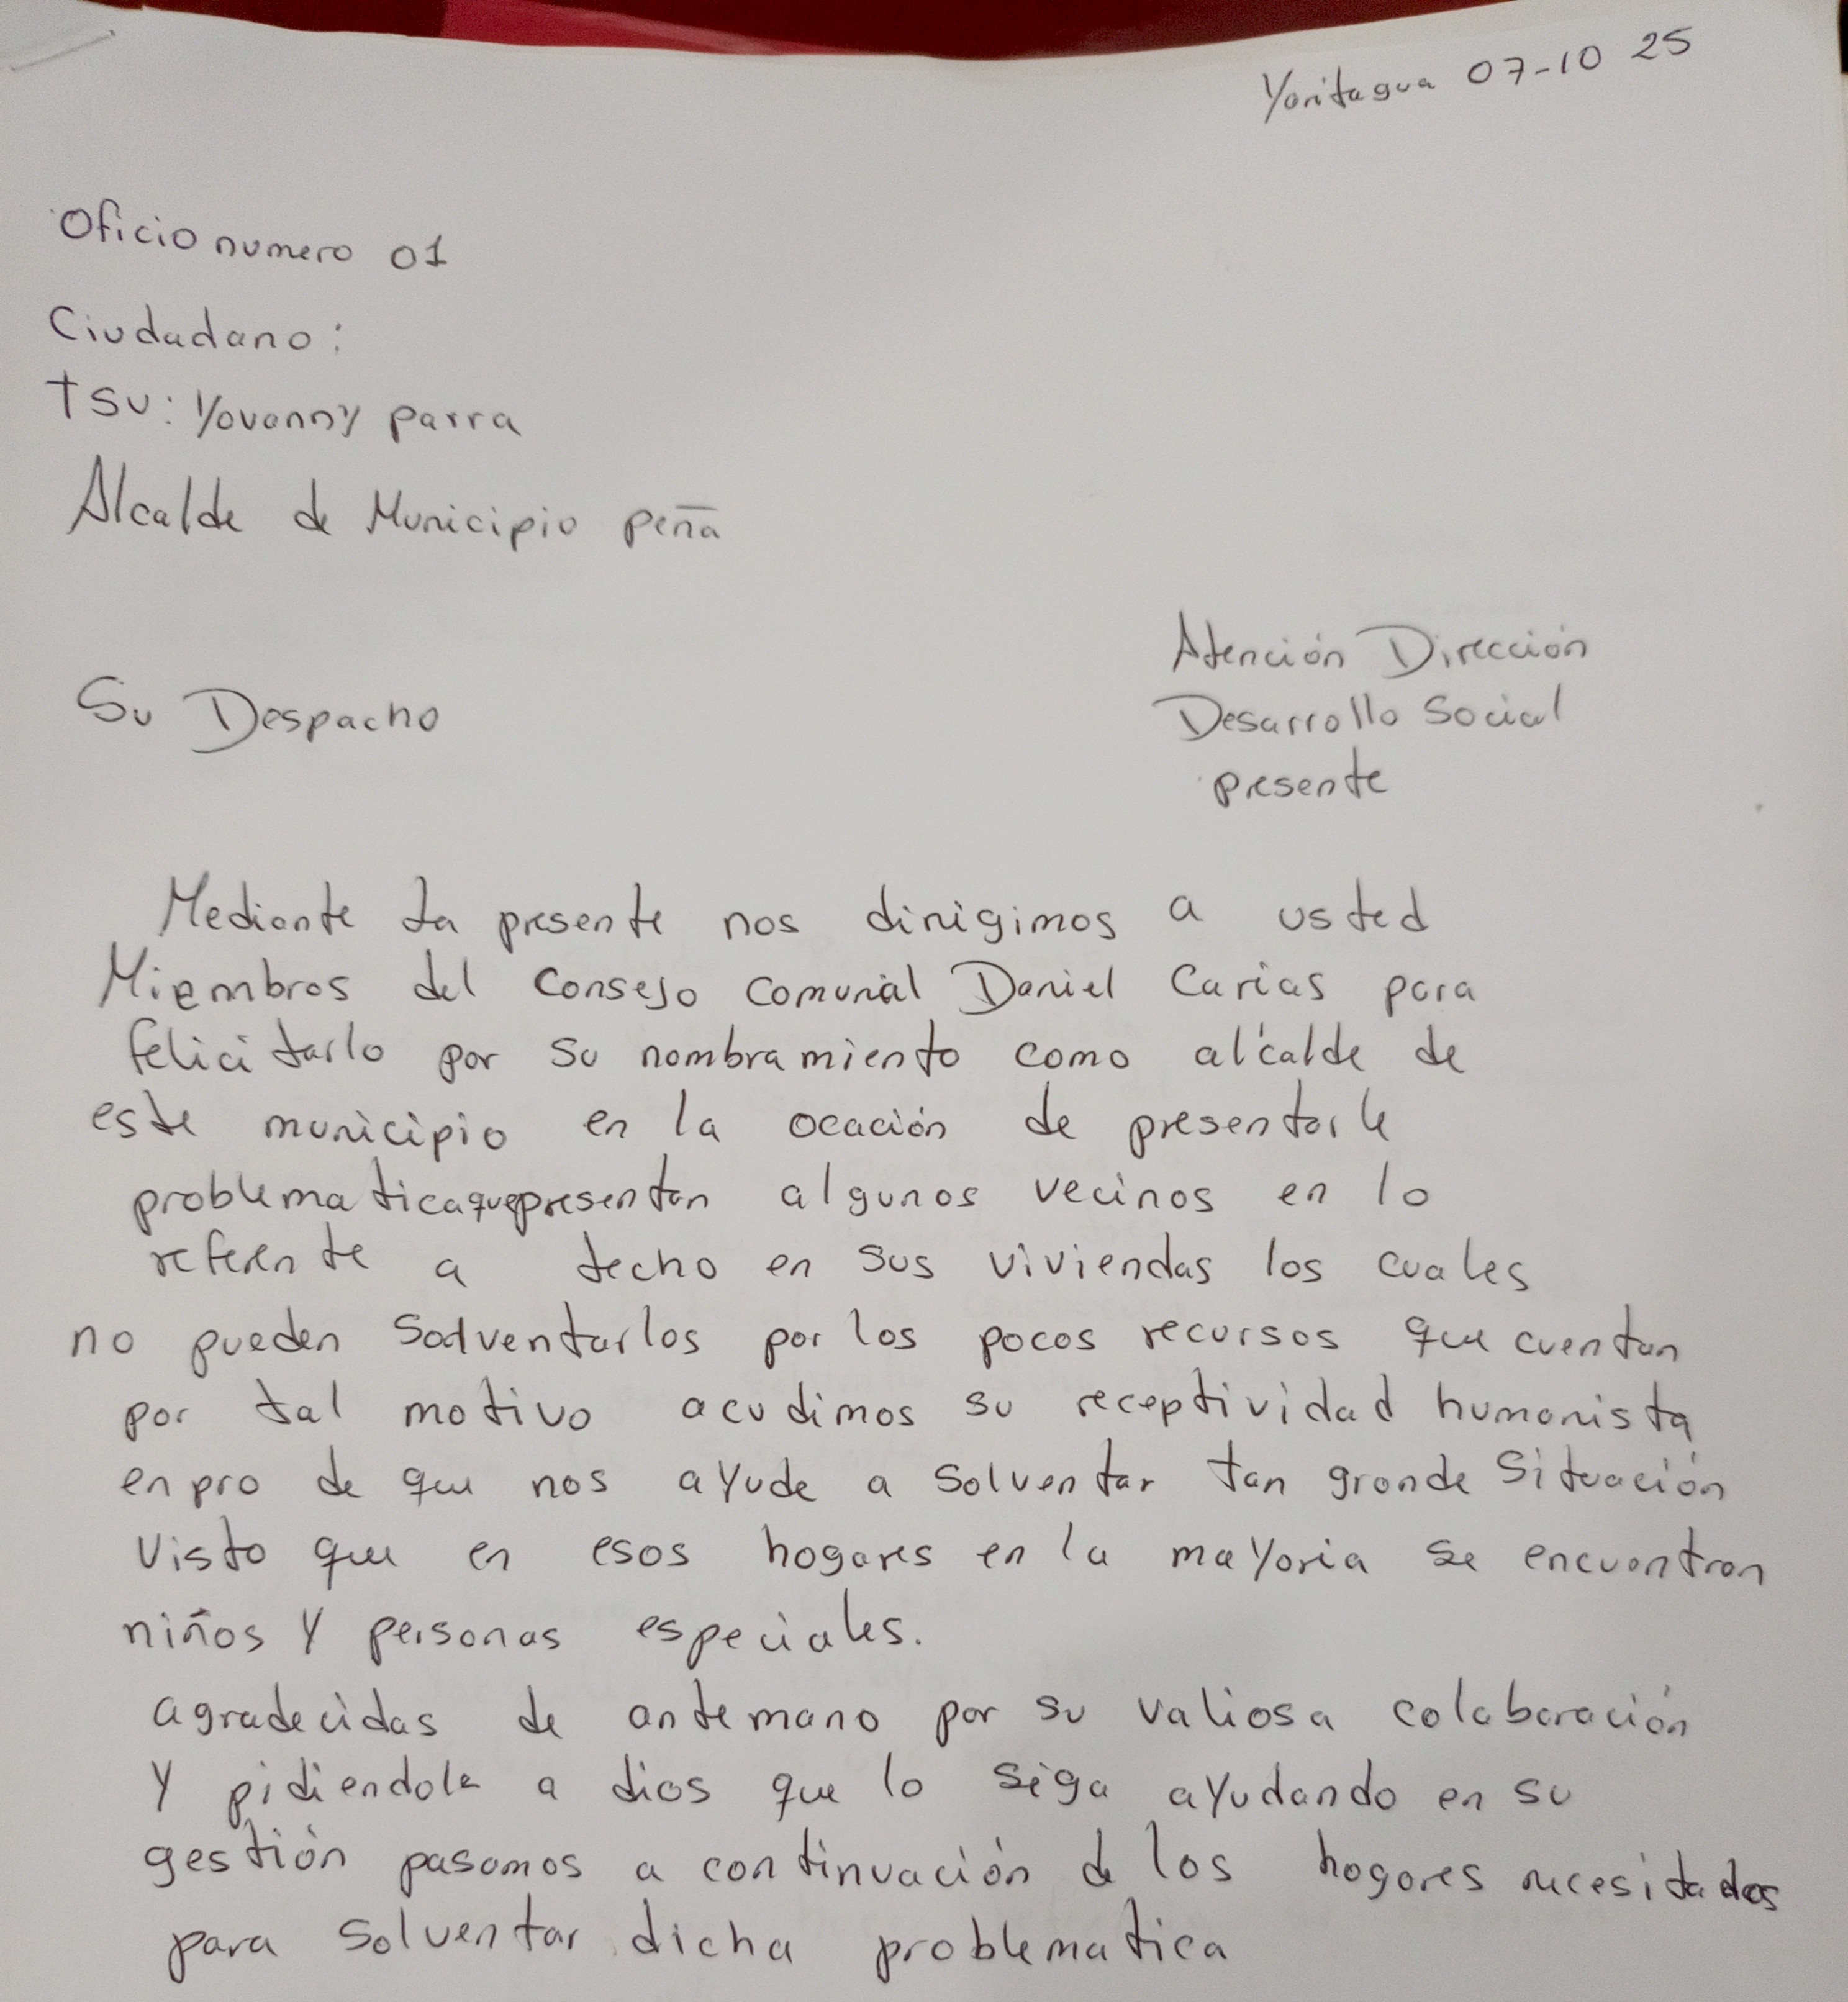 Yaritagua 07-10 25
Oficio numero 01
Ciudadano:
TSU: Yovanny parra
Alcalde de Municipio peña
Atención Dirección
Su Despacho
Desarrollo Social
presente
Mediante la presente nos dirigimos a usted
Miembros del Consejo comunal Daniel Carias para
felicitarlo por su nombramiento como alcalde de
este municipio en la ocación de presentarle
problematica que presentan algunos vecinos en lo
referente a techo en sus viviendas los cuales
no pueden solventarlos por los pocos recursos que cuentan
por tal motivo acudimos su receptividad humanista
en pro de que nos ayude a solventar tan grande situación
Visto que en esos hogares en la mayoria se encuentran
niños y personas especiales.
agradecidas de antemano por su valiosa colaboración
Y pidiendole a dios que lo siga ayudando en su
gestión pasamos a continuación de los hogares necesitados
para solventar dicha problematica